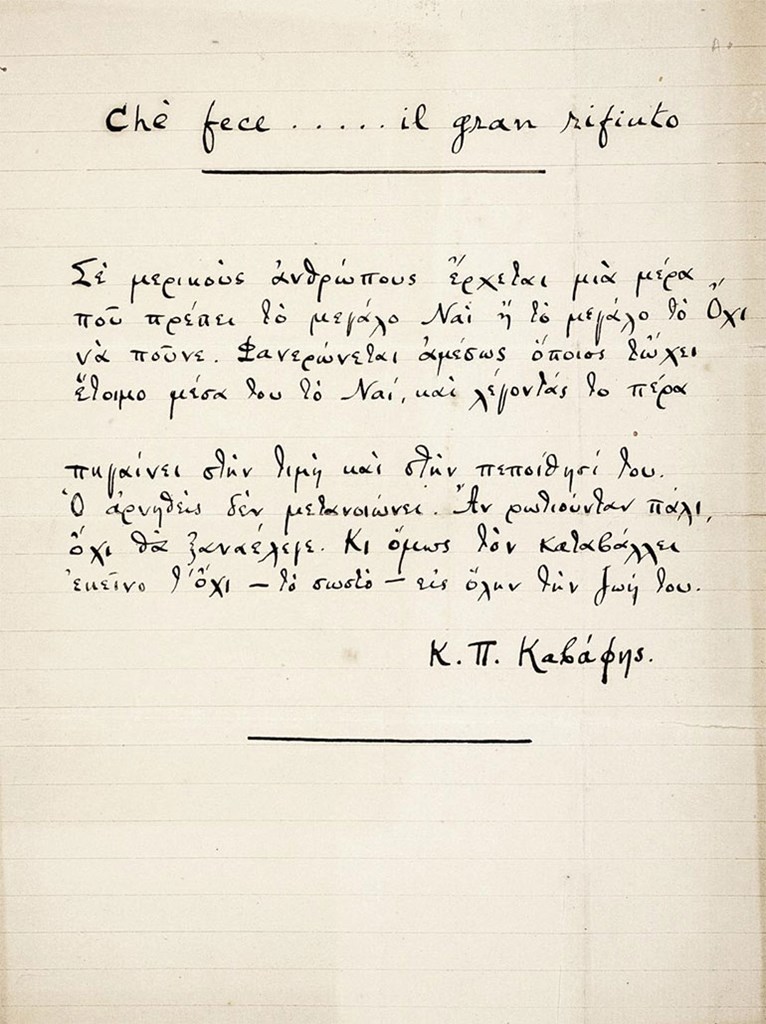 Chè fece ..... il gran rifiuto
Σὲ μερικοὺς ἀνθρώπους ἔρχεται μιὰ μέρα
ποῦ πρέπει τὸ μεγάλο Ναὶ ἢ τὸ μεγάλο τὸ Ὄχι
νὰ ποῦνε. Φανερώνεται ἀμέσως ὅποιος τὤχει
ἕτοιμο μέσα του τὸ Ναί, καὶ λέγοντάς το πέρα
πηγαίνει στὴν τιμὴ καὶ στὴν πεποίθησί του.
Ὁ ἀρνηθεὶς δὲν μετανοιώνει. Ἂν ρωτιούνταν πάλι,
ὄχι θὰ ξαναέλεγε. Κι ὅμως τὸν καταβάλλει
ἐκεῖνο τ’ ὄχι — τὸ σωστὸ — εἰς ὅλην τὴν ζωή του.
Κ. Π. Καβάφης.